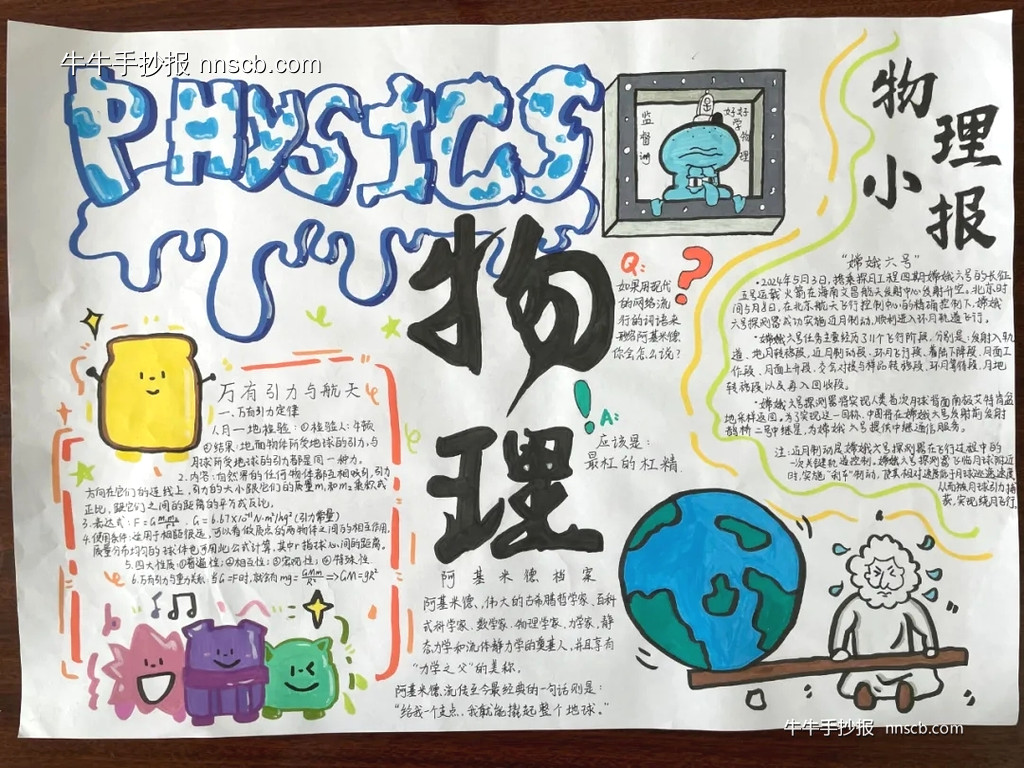 牛牛手抄报 nnscb.com
PHYSICS
监督岗
好好学物理
物理小报
物理
Q:
?
如果用现代
的网络流
行的词语来
形容阿基米德
你会怎么说?
!
A:
应该是:
最杠的杠精
万有引力与航天
一、万有引力定律
1.月一地检验:①检验人:牛顿
②结果:地面物体所受地球的引力,与
月球所受地球的引力都是同一种力。
2.内容:自然界的任何物体都互相吸引,引力
方向在它们的连线上,引力的大小跟它们的质量m₁和m₂乘积成
正比,跟它们之间的距离的平方成反比。
3.表达式:F=Gm₁m₂/r², G=6.67×10⁻¹¹N·m²/kg²(引力常量)
4.使用条件:适用于相距很远,可以看做质点的两物体之间的相互作用,
质量分布均匀的球体也可用此公式计算,其中r指球心间的距离。
5.四大性质:①普遍性;②相互性;③宏观性;④特殊性
6.万有引力与重力关系:当G=F时,就会有mg=GMm/R²⇒GM=gR²
阿基米德档案
阿基米德、伟大的古希腊哲学家、百科
式科学家、数学家、物理学家、力学家,静
态力学和流体静力学的奠基人,并且享有
“力学之父”的美称。
阿基米德流传至今最经典的一句话则是:
“给我一个支点,我就能撬起整个地球。”
“嫦娥六号”
·2024年5月3日,搭乘探月工程四期嫦娥六号的长征
五号运载火箭在海南文昌航天发射中心发射升空。北京时
间5月8日,在北京航天飞行控制中心的精确控制下,嫦娥
六号探测器成功实施近月制动,顺利进入环月轨道飞行。
·嫦娥六号任务主要经历了11个飞行阶段,分别是:发射入轨
道、地月转移段,近月制动段,环月飞行段、着陆下降段,月面工
作段,月面上升段,交会对接与样品转移段,环月等待段,月地
转移段以及再入回收段。
·嫦娥六号探测器将实现人类首次月球背面南极艾特肯盆
地采样返回,为了实现这一目标,中国将在嫦娥六号发射前发射
鹊桥二号中继星,为嫦娥六号提供中继通信服务。
注:近月制动是嫦娥六号探测器在飞行过程中的
一次关键轨道控制。嫦娥六号探测器飞临月球附近
时,实施“刹车”制动,使其相对速度低于月球逃逸速度,
从而被月球引力捕
获,实现绕月飞行。
牛牛手抄报 nnscb.com